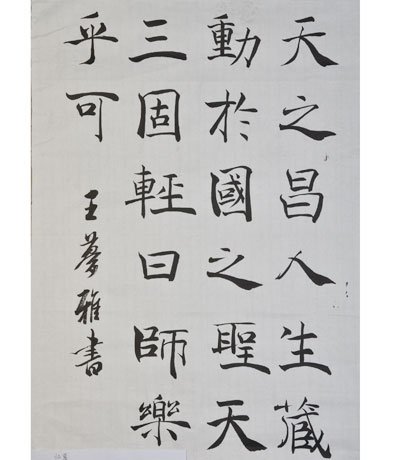 天之昌人生藏
動於國之聖天
三固輕曰師樂
乎可
王夢雅書